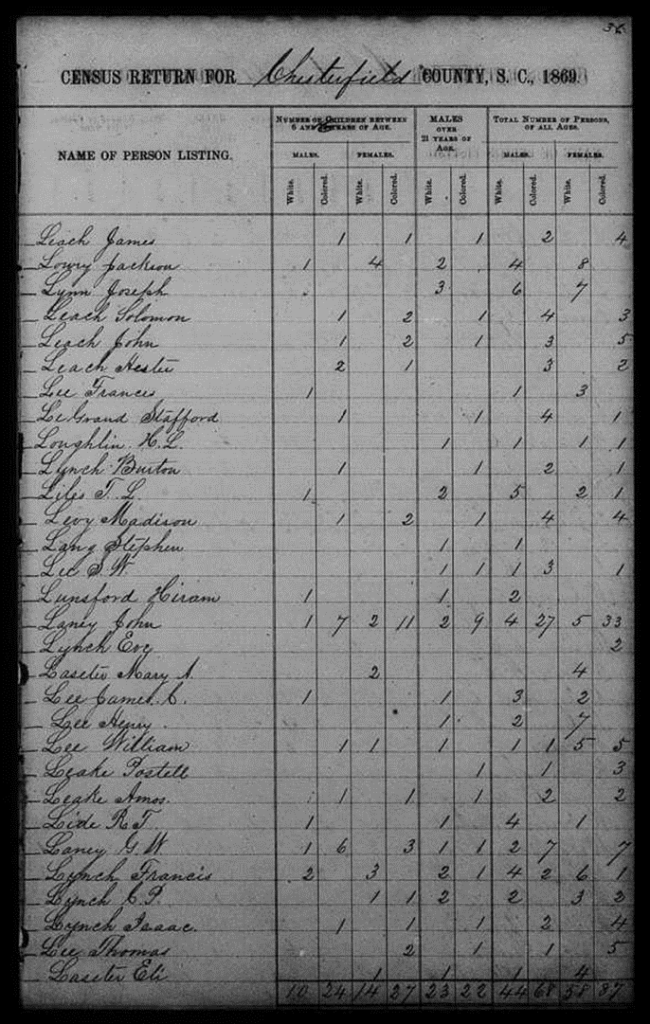 36
CENSUS RETURN FOR Chesterfield COUNTY, S. C., 1869.
NAME OF PERSON LISTING.
NUMBER OF CHILDREN BETWEEN 6 AND YEARS OF AGE.
MALES OVER 21 YEARS OF AGE.
TOTAL NUMBER OF PERSONS, OF ALL AGES.
MALES. FEMALES. MALES. FEMALES.
White. Colored. White. Colored. White. Colored. White. Colored. White. Colored.
Leach James 1 1 1 2 4
Lowry Jackson 1 4 2 4 8
Lynn Joseph 3 6 7
Leach Solomon 1 2 1 4 3
Leach John 1 2 1 3 5
Leach Hester 2 1 3 2
Lee Frances 1 1 3
LeGrand Stafford 1 1 4 1
Loughlin H. L. 1 1 1 1
Lynch Burton 1 1 2 1
Liles T. L. 1 2 5 2 1
Levy Madison 1 2 1 4 4
Lang Stephen 1 1
Lee S W. 1 1 1 3 1
Lunsford Hiram 1 1 2
Laney John 1 7 2 11 2 9 4 27 5 33
Lynch 2
Laseter Mary A. 2 4
Lee James C. 1 1 3 2
Lee Henry 1 2 7
Lee William 1 1 1 1 1 5 5
Leake Postell 1 1 3
Leake Amos. 1 1 1 2 2
Lide R T 1 1 4 1
Laney G. W 1 6 3 1 1 2 7 7
Lynch Francis 2 3 2 1 4 2 6 1
Lynch C. P. 1 1 2 2 3 2
Lynch Isaac. 1 1 1 2 4
Lee Thomas 2 1 1 5
Laseter Eli 1 1 1 4
10 24 14 27 23 22 44 68 58 87